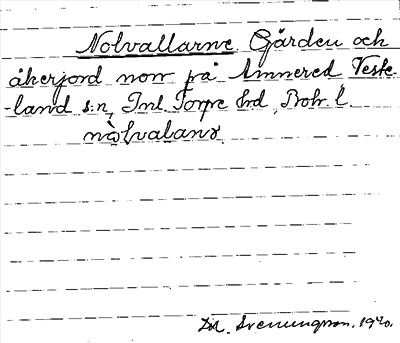 Nolvallarne Gärden och
åkerjord norr på Amnered Veste-
land s:n, Inl. Torpe hrd, Boh. l.
nòlvalanɤ
M. Svenungsson. 1940.